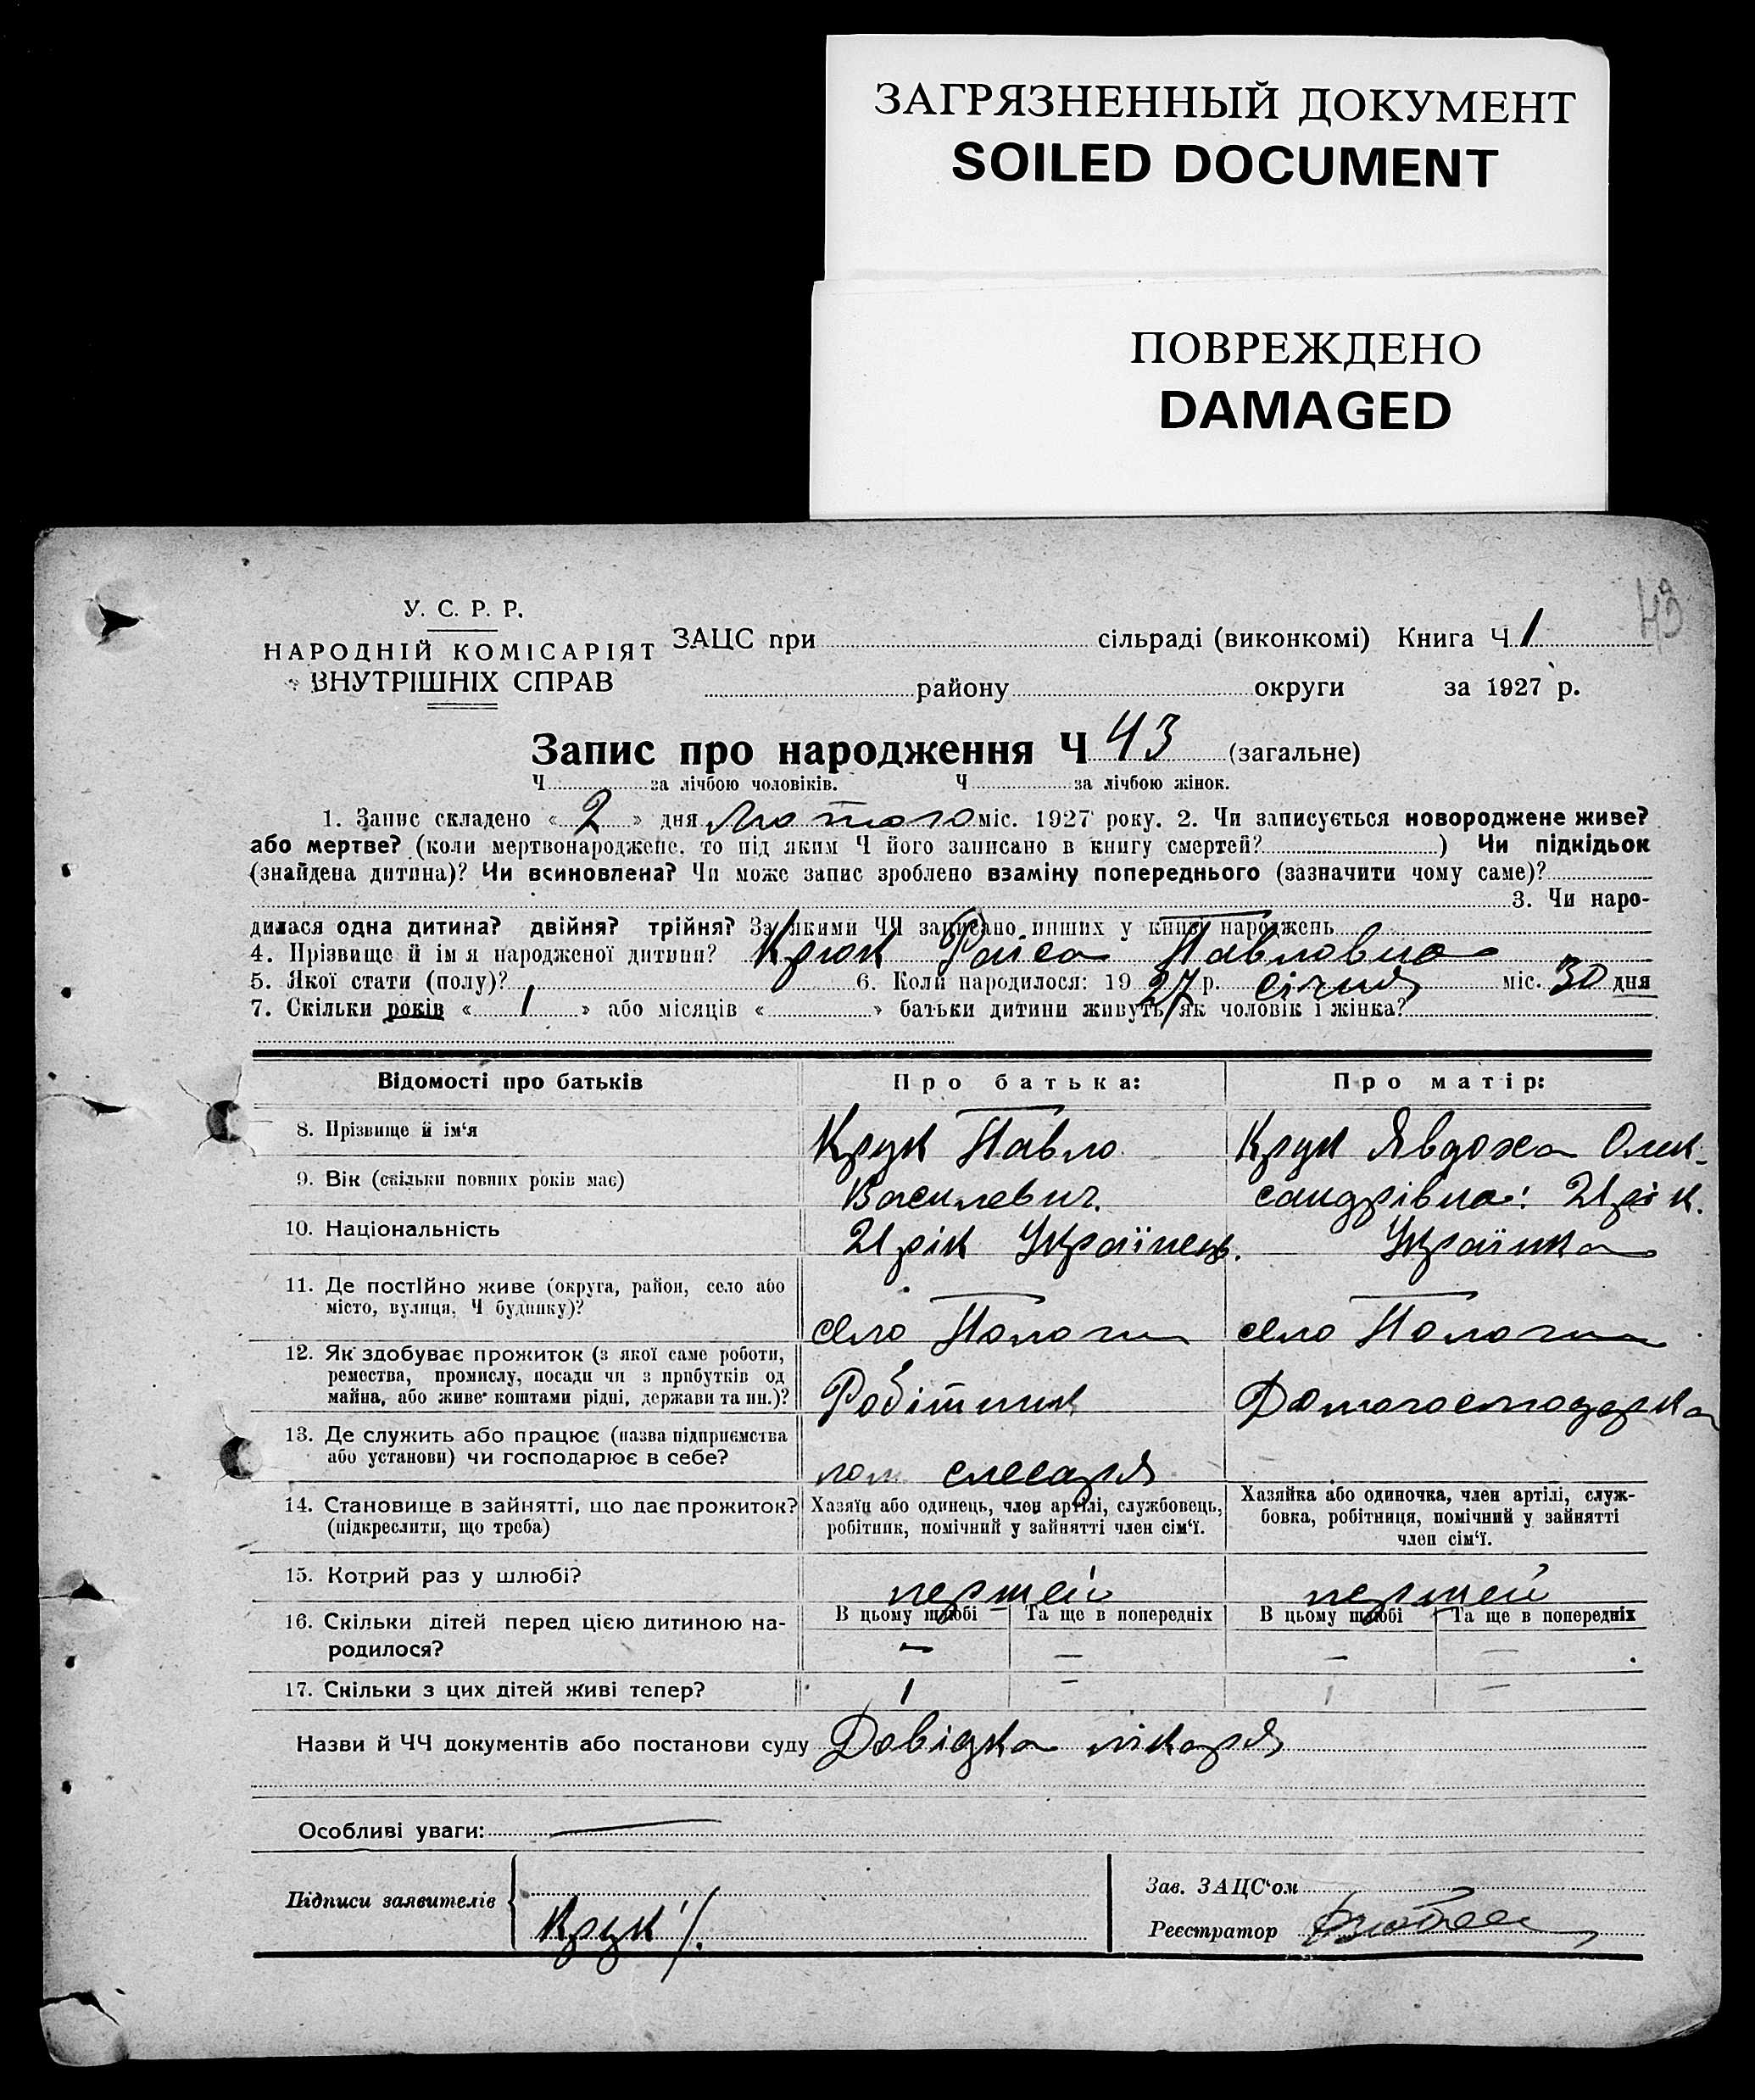 ЗАГРЯЗНЕННЫЙ ДОКУМЕНТ
SOILED DOCUMENT
ПОВРЕЖДЕНО
DAMAGED
43
У. С. Р. Р.
НАРОДНІЙ КОМІСАРІЯТ
ВНУТРІШНІХ СПРАВ
ЗАЦС при сільраді (виконкомі) Книга Ч. 1
району округи за 1927 р.
Запис про народження Ч 43 (загальне)
Ч за лічбою чоловіків. Ч за лічбою жінок.
1. Запис складено « 2 » дня Лютого міс. 1927 року. 2. Чи записується новороджене живе?
або мертве? (коли мертвонароджене, то під яким Ч його записано в книгу смертей? ) Чи підкідьок
(знайдена дитина)? Чи всиновлена? Чи може запис зроблено взаміну попереднього (зазначити чому саме)?
3. Чи наро-
дилася одна дитина? двійня? трійня? За якими ЧЧ записано инших у книзі народжень
4. Прізвище й ім я народженої дитини? Крюк Раіса Павловна
5. Якої стати (полу)? 6. Коли народилося: 19 27 р. січня міс. 30 дня
7. Скільки років « 1 » або місяців « » батьки дитини живуть як чоловік і жінка?
Відомості про батьків Про батька: Про матір:
8. Прізвище й ім'я Крук Павло Крук Явдоха Олек-
9. Вік (скільки повних років має) Василевич. сандрівна: 21 рік.
10. Національність 21 рік Українець. Українка
11. Де постійно живе (округа, район, село або
місто, вулиця, Ч будинку)? село Пологи село Пологи
12. Як здобуває прожиток (з якої саме роботи,
ремества, промислу, посади чи з прибутків од
майна, або живе коштами рідні, держави та ин.)? Робітник Домогосподарка
13. Де служить або працює (назва підприємства
або установи) чи господарює в себе? слесаря
14. Становище в зайнятті, що дає прожиток?
(підкреслити, що треба)
Хазяїн або одинець, член артілі, службовець,
робітник, помічний у зайнятті член сім'ї.
Хазяйка або одиночка, член артілі, служ-
бовка, робітниця, помічний у зайнятті
член сім'ї.
15. Котрий раз у шлюбі? першей першей
16. Скільки дітей перед цією дитиною на-
родилося?
В цьому шлюбі Та ще в попередніх В цьому шлюбі Та ще в попередніх
— — — —
17. Скільки з цих дітей живі тепер? 1 — 1 —
Назви й ЧЧ документів або постанови суду Довідка лікаря
Особливі уваги: —
Підписи заявителів
Крук
Зав. ЗАЦС'ом
Реєстратор